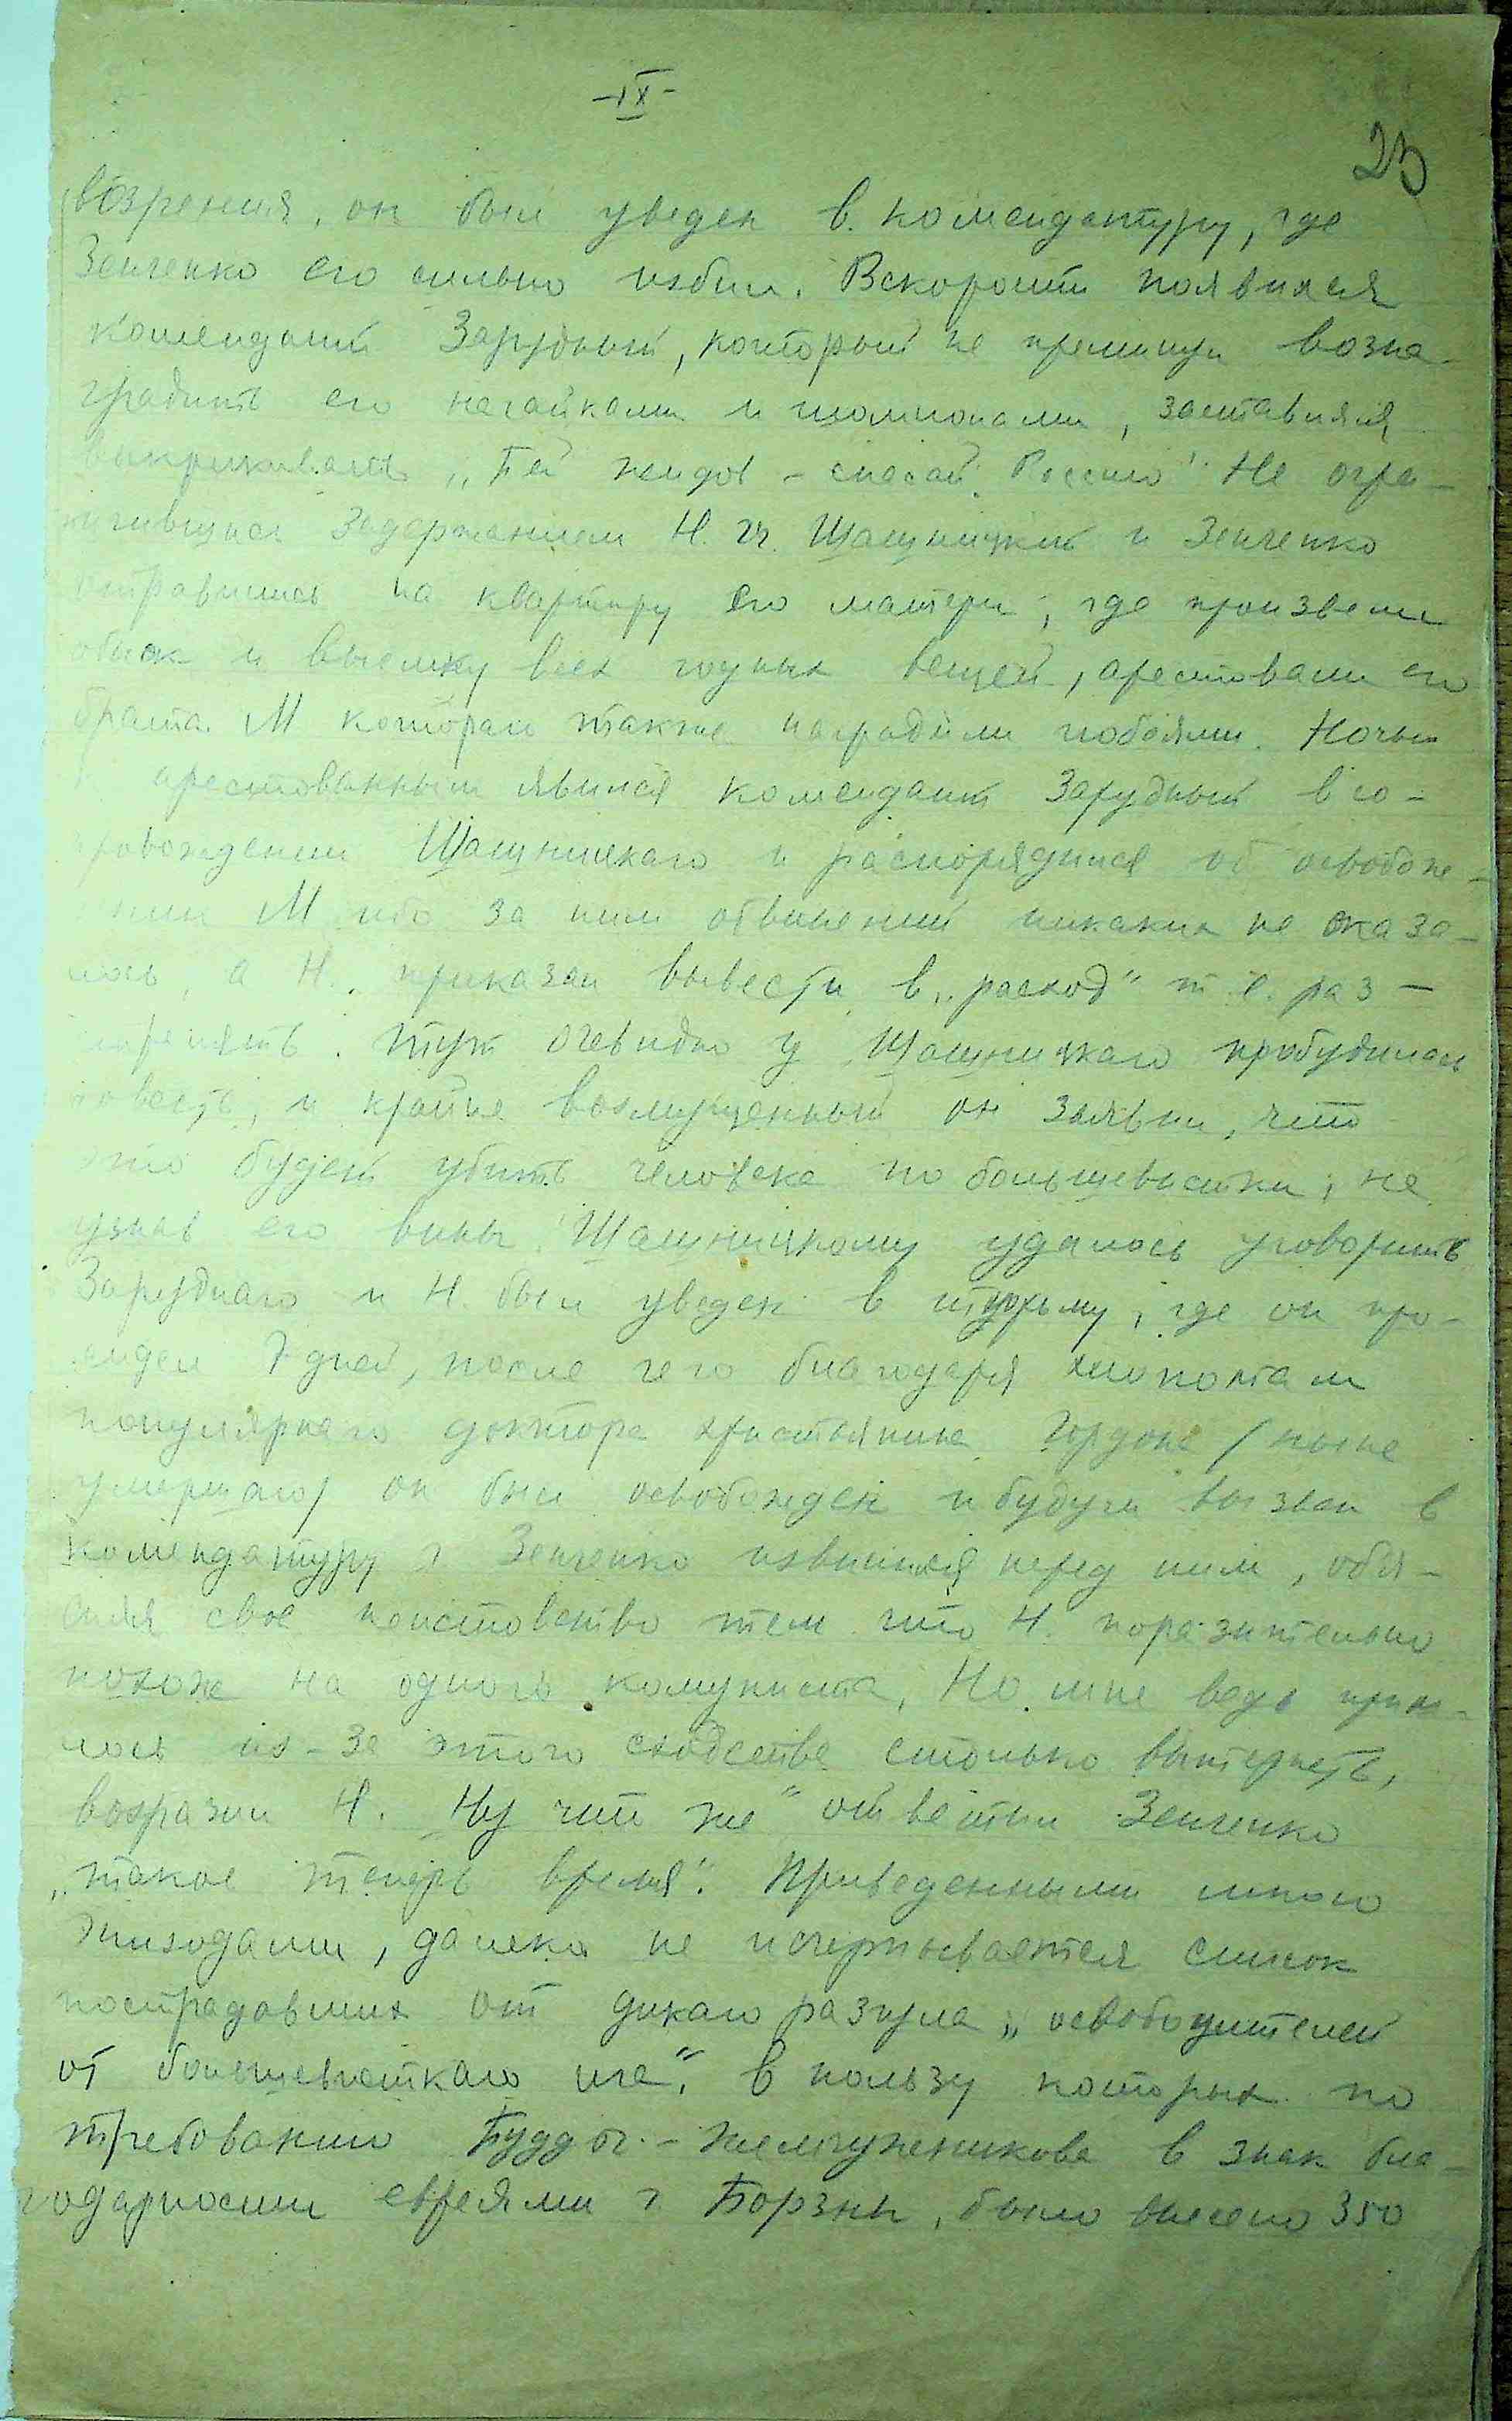 -IX-
23
возрения, он был уведен в комендатуру, где
Зенченко его сильно избил. Вскорости появился
комендант Зарудный, который не преминул возна-
градить его нагайками и шомполами, заставляя
выкрикивать „Бей жидов - спасай Россию" Не огра-
ничившись задержанием Н. гг. Шашницкий и Зенченко
отправились на квартиру его матери, где произвели
обыск и выемку всех годных вещей, арестовали его
брата М которого также наградили побоями. Ночью
к арестованным явился комендант Зарудный в со-
провождении Шашницкаго и распорядился об освобож-
нии М ибо за ним обвинений никаких не оказа-
лось, а Н. приказал вывести в „расход" т. е. раз-
стрелять. Тут очевидно у Шашницкаго пробудилась
совесть, и крайне возмущенный он заявил, что
это будет убить человека по большевистки, не
узнав его вины. Шашницкому удалось уговорить
Заруднаго и Н. был уведен в тюрьму, где он про-
сидел 7 дней, после чего благодаря хлопотам
популярнаго доктора христианина Гордона / ныне
умершаго/ он был освобожден и будучи вызван в
комендатуру г Зенченко извинился перед ним, объя-
сняя свое неистовство тем что Н. поразительно
похож на одного комуниста, Но мне ведь приш-
лось из-за этого сходства столько вытерпеть,
возразил Н. Ну что же" ответил Зенченко
„такое теперь время". Приведенными мною
эпизодами, далеко не исчерпывается список
пострадавших от дикаго разгула „освободителей
от большевисткаго ига", в пользу которых по
требованию в знак бла-
годарности евреями г. Борзны, было внесено 350